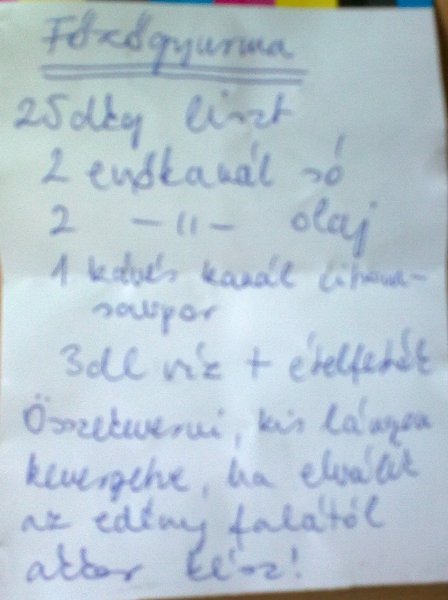 Főzőgyurma
25dkg liszt
2 evőkanál só
2 -II- olaj
1 kávés kanál citrom-
savpor
3dl víz + ételfesték
Összekeverni, kis lángon
kevergetve, ha elválik
az edény falától
akkor kész!